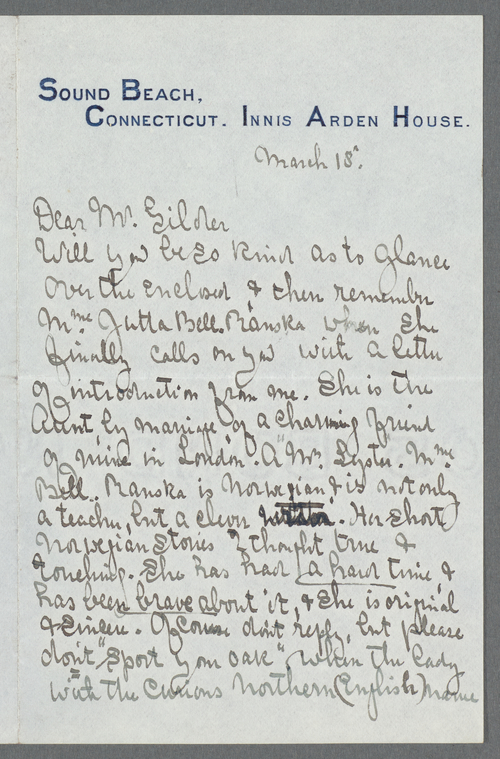 SOUND BEACH,
CONNECTICUT. INNIS ARDEN HOUSE.
March 18th.
Dear Mr. Gilder
Will you be so kind as to glance
over the enclosed & then remember
Mme Jutta Bell-Ranska when she
finally calls on you with a letter
of introduction from me. She is the
Aunt by marriage of a charming friend
of mine in London. A "Mrs. Lyster. Mme
Bell-Ranska is Norwegian & is not only
a teacher, but a clever writer. Her short
Norwegian Stories I thought true &
touching. She has had a hard time, &
has been brave about it, & she is original
& sincere. Of course don't reply, but please
don't "sport your oak" when the lady
with the curious Northern (English) name